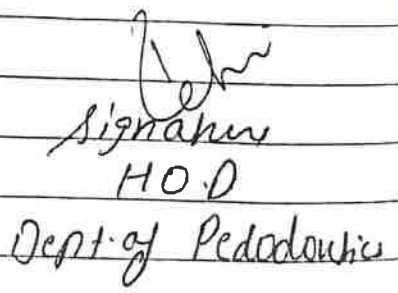 Signature
H.O.D
Dept. of Pedodontics